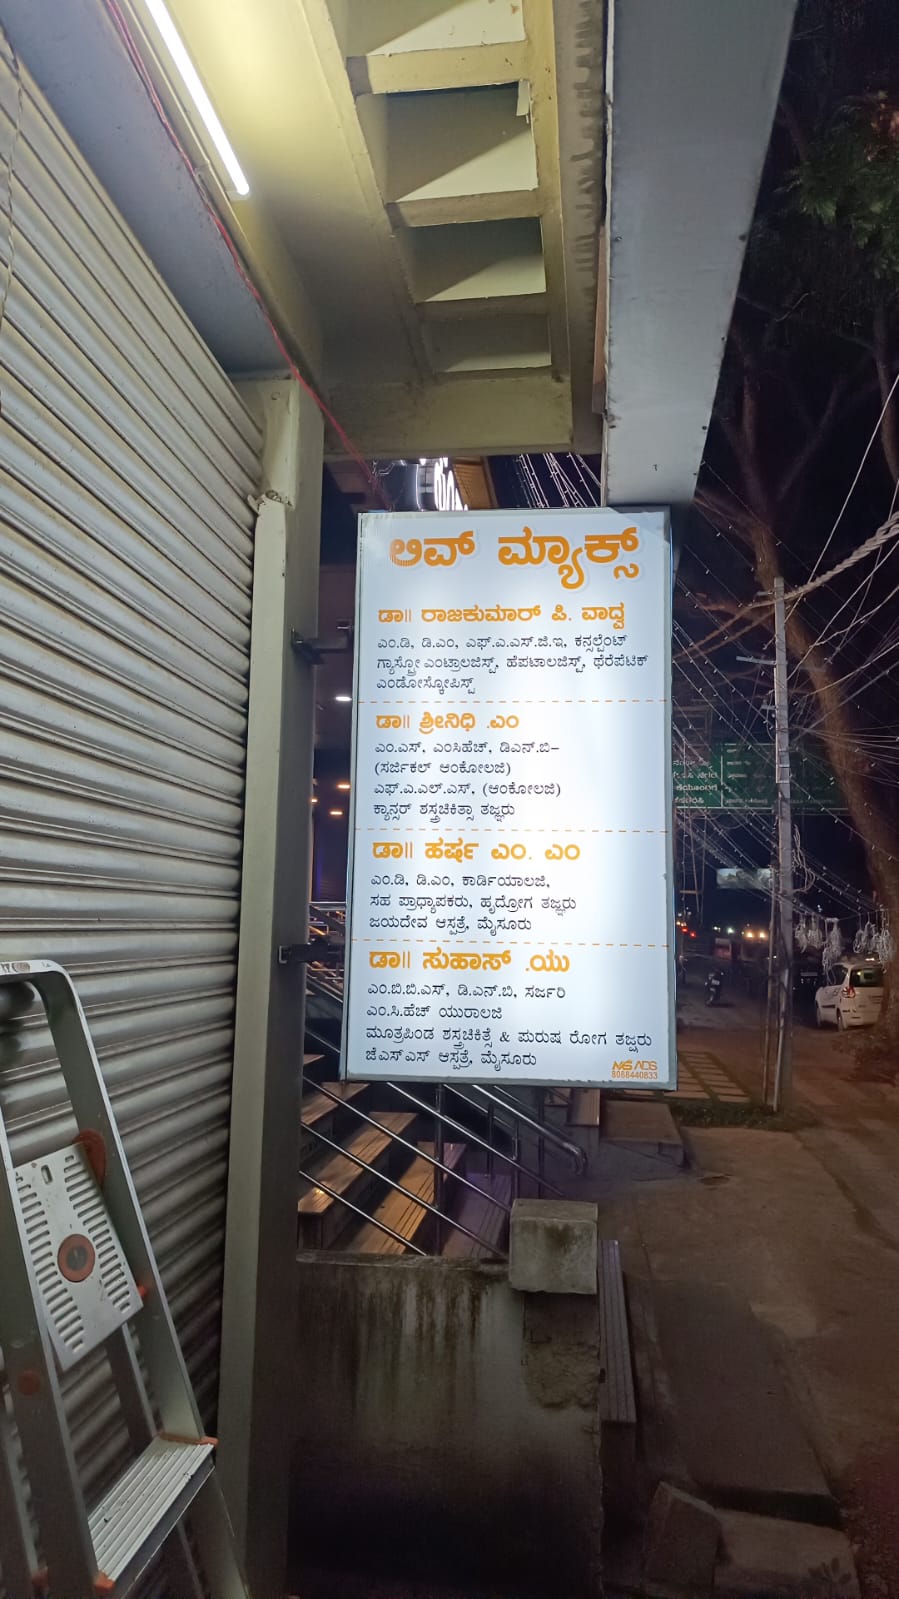 ಲಿವ್ ಮ್ಯಾಕ್ಸ್
ಡಾ|| ರಾಜಕುಮಾರ್ ಪಿ. ವಾಧ್ವ
ಎಂ.ಡಿ, ಡಿ.ಎಂ, ಎಫ್.ಎ.ಎಸ್.ಜಿ.ಇ, ಕನ್ಸಲ್ಟೆಂಟ್
ಗ್ಯಾಸ್ಟ್ರೋಎಂಟ್ರಾಲಜಿಸ್ಟ್, ಹೆಪಟಾಲಜಿಸ್ಟ್, ಥೆರೆಪೆಟಿಕ್
ಎಂಡೋಸ್ಕೋಪಿಸ್ಟ್
ಡಾ|| ಶ್ರೀನಿಧಿ .ಎಂ
ಎಂ.ಎಸ್, ಎಂಸಿಹೆಚ್, ಡಿಎನ್.ಬಿ–
(ಸರ್ಜಿಕಲ್ ಆಂಕೋಲಜಿ)
ಎಫ್.ಎ.ಎಲ್.ಎಸ್, (ಆಂಕೋಲಜಿ)
ಕ್ಯಾನ್ಸರ್ ಶಸ್ತ್ರಚಿಕಿತ್ಸಾ ತಜ್ಞರು
ಡಾ|| ಹರ್ಷ ಎಂ. ಎಂ
ಎಂ.ಡಿ, ಡಿ.ಎಂ, ಕಾರ್ಡಿಯಾಲಜಿ,
ಸಹ ಪ್ರಾಧ್ಯಾಪಕರು, ಹೃದ್ರೋಗ ತಜ್ಞರು
ಜಯದೇವ ಆಸ್ಪತ್ರೆ, ಮೈಸೂರು
ಡಾ|| ಸುಹಾಸ್ .ಯು
ಎಂ.ಬಿ.ಬಿ.ಎಸ್, ಡಿ.ಎನ್.ಬಿ, ಸರ್ಜರಿ
ಎಂ.ಸಿ.ಹೆಚ್ ಯುರಾಲಜಿ
ಮೂತ್ರಪಿಂಡ ಶಸ್ತ್ರಚಿಕಿತ್ಸೆ & ಪುರುಷ ರೋಗ ತಜ್ಞರು
ಜೆಎಸ್ಎಸ್ ಆಸ್ಪತ್ರೆ, ಮೈಸೂರು
ADS
8088440833